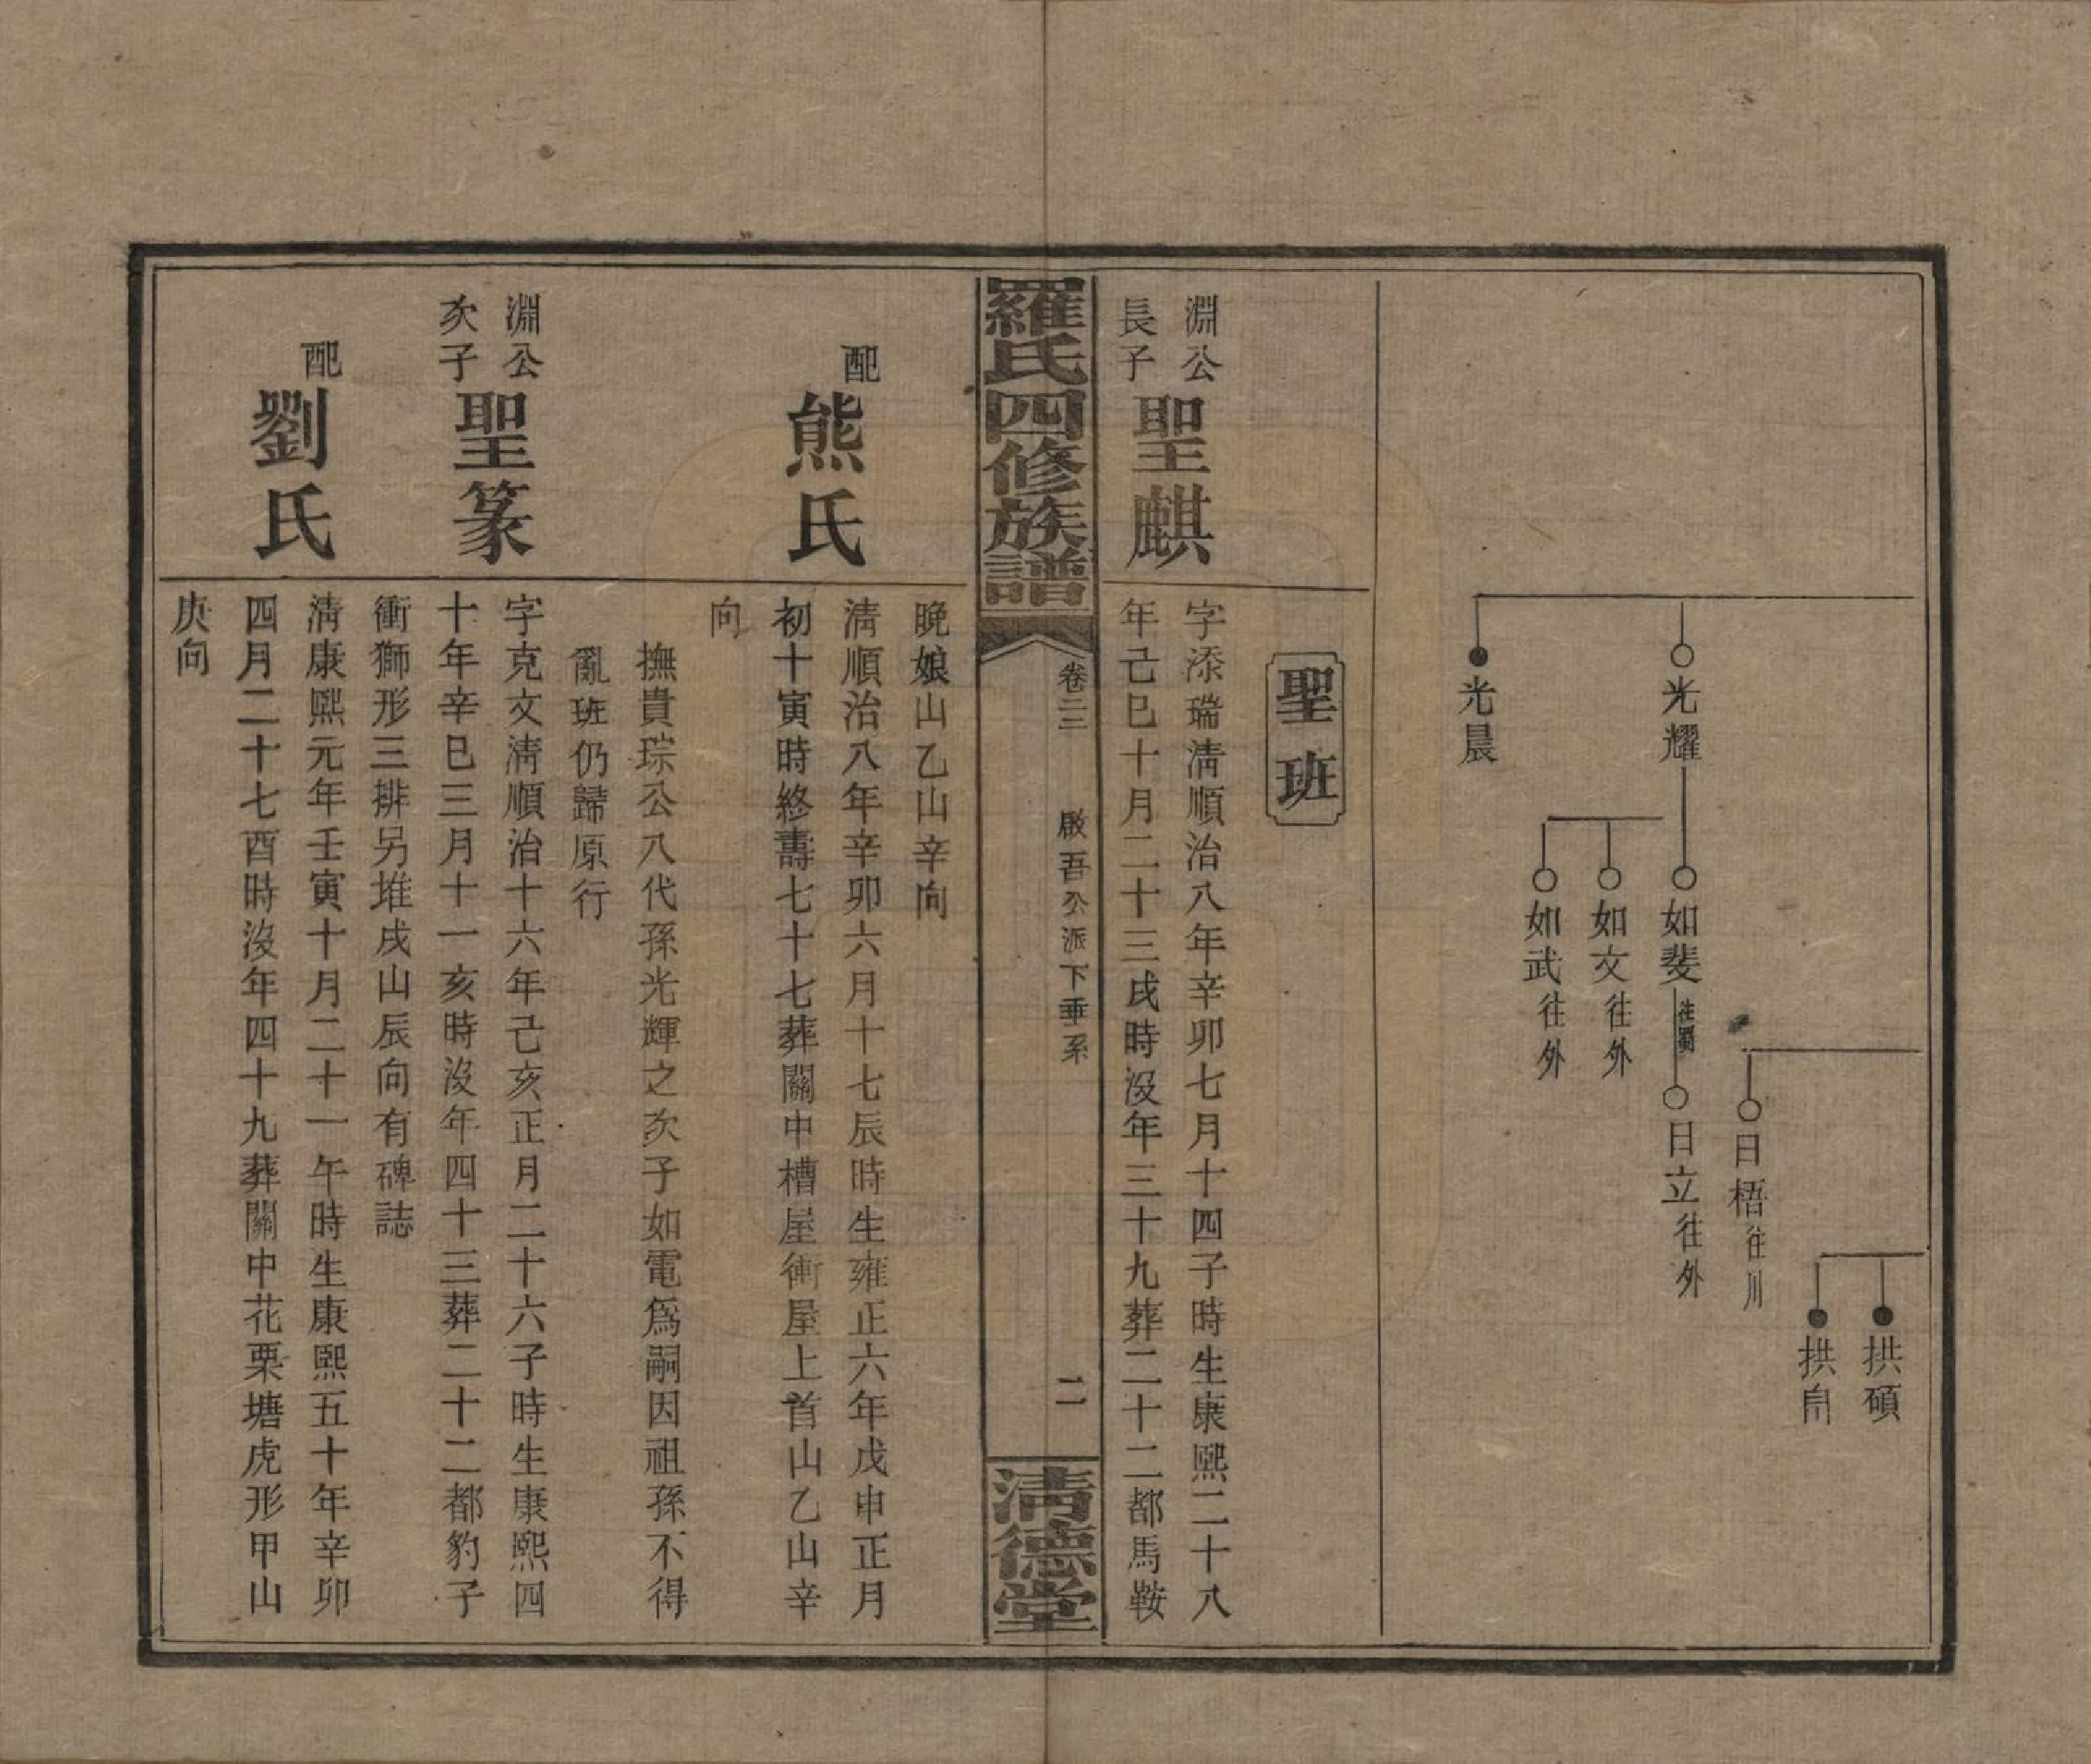 拱碩
拱帛
日梧往川
光耀
如斐往蜀
日立往外
如文往外
如武往外
光晨
聖班
淵公
長子
聖麒
字添瑞清順治八年辛卯七月十四子時生康熙二十八
年己巳十月二十三戌時沒年三十九葬二十二都馬鞍
羅氏四修族譜
卷二三
啟吾公派下垂系
二
清德堂
晚娘山乙山辛向
配
熊氏
清順治八年辛卯六月十七辰時生雍正六年戊申正月
初十寅時終壽七十七葬關中槽屋衝屋上首山乙山辛
向
撫貴琮公八代孫光輝之次子如電為嗣因祖孫不得
亂班仍歸原行
淵公
次子
聖篆
字克文清順治十六年己亥正月二十六子時生康熙四
十年辛巳三月十一亥時沒年四十三葬二十二都豹子
衝獅形三排另堆戌山辰向有碑誌
配
劉氏
清康熙元年壬寅十月二十一午時生康熙五十年辛卯
四月二十七酉時沒年四十九葬關中花栗塘虎形甲山
庚向